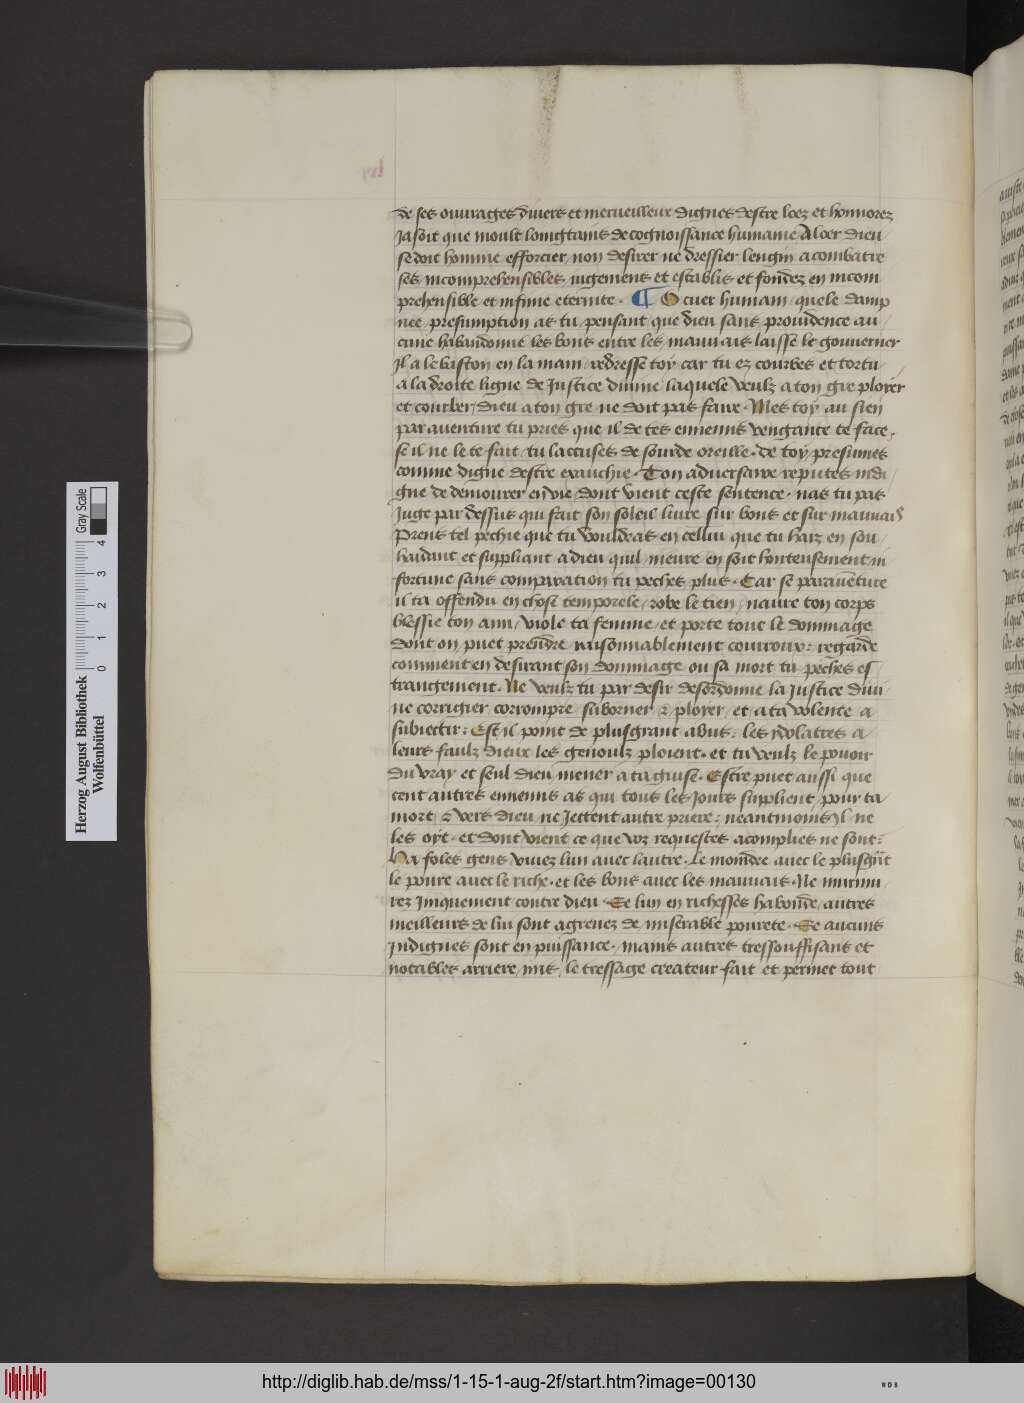 de ses ouvrages divers et merveilleux dignes destre loez et honnorez
Jasoit que moult loingtains de cognoissance humaine A loer dieu
se doit homme efforcier non desirer ne dressier lengin a combatre
ses incomprehensibles jugemens et establis et fondez en incom
prehensible et infinie eternite. ¶ O cuer humain quele damp
nee presumption as tu pensant que dieu sans providence au
cune habandonne les bons entre les mauvais laisse le gouverner
Il a le baston en la main redresse toy car tu ez courbes et tortu
a la droite ligne de Justice divine laquele veulz a ton gre ployer
et courber dieu a ton gre ne doit pas faire. Mes toy au sien
par aventure tu pries que il de tes ennemis vengance te face.
se il ne le te fait tu laccuses de sourde oreille. de toy presumes
comme digne destre exauchie. Ton adversaire reputes indi
gne de demourer en vie dont vient ceste sentence. nas tu pas
Juge par dessus qui fait son soleil luire sur bons et sur mauvais
Prens tel pechie que tu vouldras en cellui que tu haiz en sou
haidant et suppliant a dieu quil meure en soit honteusement in
fortune sans comparation tu peches plus. Car se paraventure
il ta offendu en chose temporele robe le tien navre ton corps
blessie ton ami viole ta femme et porte tout le dommage
dont on puet prendre raisonnablement courroux: regarde
comment en desirant son dommage ou sa mort tu peches es
trangement. Ne veulz tu par desir desordonne la Justice divi
ne corrigier corrompre suborner & ployer et a ta volente a
subiectir: Est il point de plusgrant abus: les ydolatres a
leurs faulz dieux les genoulz ploient. et tu veulz le povoir
du vray et seul dieu mener a ta guise. Estre puet aussi que
cent autres ennemis as qui tous les jours supplient pour ta
mort & vers dieu ne Jectent autre priere: neantmoins Il ne
les oyt. et dont vient ce que voz requestes acomplies ne sont:
Ha foles gens vivez lun avec lautre. Le moindre avec le plusgrat
le povre avec le riche. et les bons avec les mauvais. Ne murmu
rez Iniquement contre dieu. Se lun en richesses habonde autres
meilleurs de lui sont agrevez de miserable povrete. Se aucuns
Indignes sont en puissance. mains autres tressouffisans et
notables arriere mis le tressage createur fait et permet tout
Herzog August Bibliothek
Wolfenbüttel
0 1 2 3 4
Gray Scale
http://diglib.hab.de/mss/1-15-1-aug-2f/start.htm?image=00130